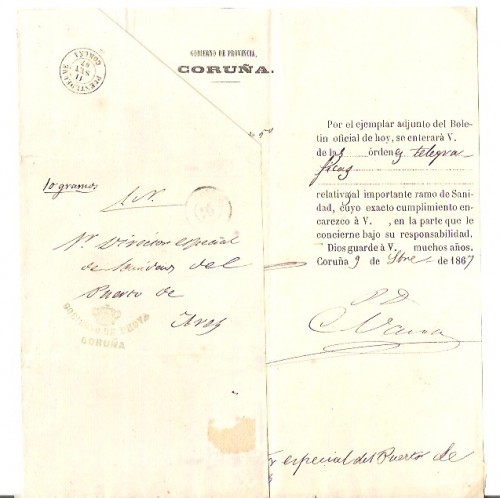 GOBIERNO DE PROVINCIA.
CORUÑA.
PUENTEDEUME
CORUÑA
10 gramos
S. N.
Sr. Director especial
de Sanidad del
Puerto de
Ares
GOBIERNO DE PROVA
CORUÑA
Por el ejemplar adjunto del Bole-
tin oficial de hoy, se enterará V.
de las órdenes telegra
ficas
relativas al importante ramo de Sani-
dad, cuyo exacto cumplimiento en-
carezco à V. , en la parte que le
concierne bajo su responsabilidad.
Dios guarde à V. muchos años.
Coruña 9 de 9bre de 1867
especial del Puerto de